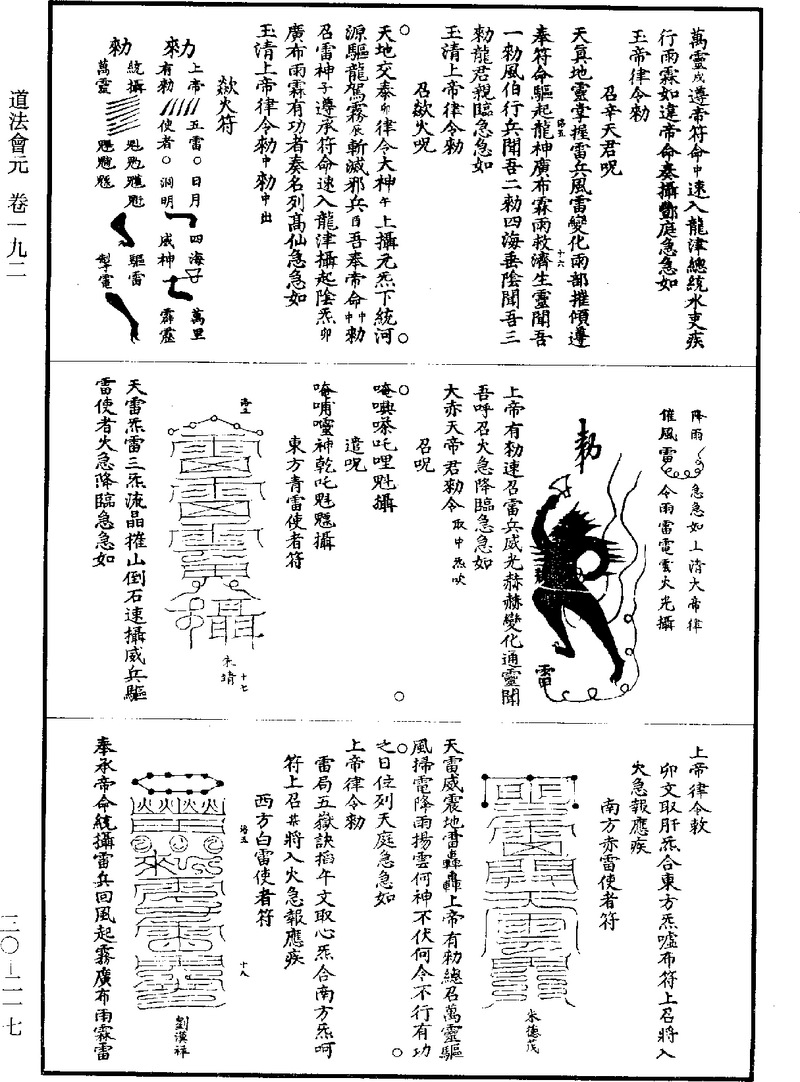 道法會元　卷一九二
萬靈戌遵帝符命中速入龍津總統水吏疾
行雨霖如違帝命奏攝酆庭急急如
玉帝律令勑
召辛天君呪
天真地靈掌握雷兵風雷變化雨部摧傾遵
奉符命驅起龍神廣布霖雨救濟生靈聞吾
一勑風伯行兵聞吾二勑四海垂陰聞吾三
勑龍君親臨急急如
玉清上帝律令勑
召歘火呪
天地交泰卯律令大神午上攝元炁下統河
源驅龍駕霧辰斬滅邪兵酉吾奉帝命中勑
召雷神子遵承符命速入龍津攝起陰炁卯
廣布雨霖有功者奏名列高仙急急如
玉清上帝律令勑中勑中出
歘火符
勑　上帝　五雷　日月　四海　萬里
有勑　使者　洞明　威神　霹靂
勑　統攝　驅雷
萬靈　掣電
降雨　急急如上清大帝律
催風雷　令雨雷電雲火光攝
勑
雷
上帝有勑速召雷兵威光赫赫變化通靈聞
吾呼召火急降臨急急如
大赤天帝君勑令取中炁吹
召呪
唵㗽㗫吒哩魁攝
遣呪
唵哺囄神乾吒魁魒攝
東方青雷使者符
朱靖
十七
天雷炁雷三炁流晶摧山倒石速攝威兵驅
雷使者火急降臨急急如
上帝律令敕
卯文取肝炁合東方炁噓布符上召將入
火急報應疾
南方赤雷使者符
朱德茂
天雷威震地雷轟轟上帝有勑總召萬靈驅
風掃電降雨揚雲何神不伏何令不行有功
之日位列天庭急急如
上帝律令勑
雷局五嶽訣掐午文取心炁合南方炁呵
符上召其將入火急報應疾
西方白雷使者符
火火火火
十八
劉漢祥
奉承帝命統攝雷兵回風起霧廣布雨霖雷
三〇—二一七